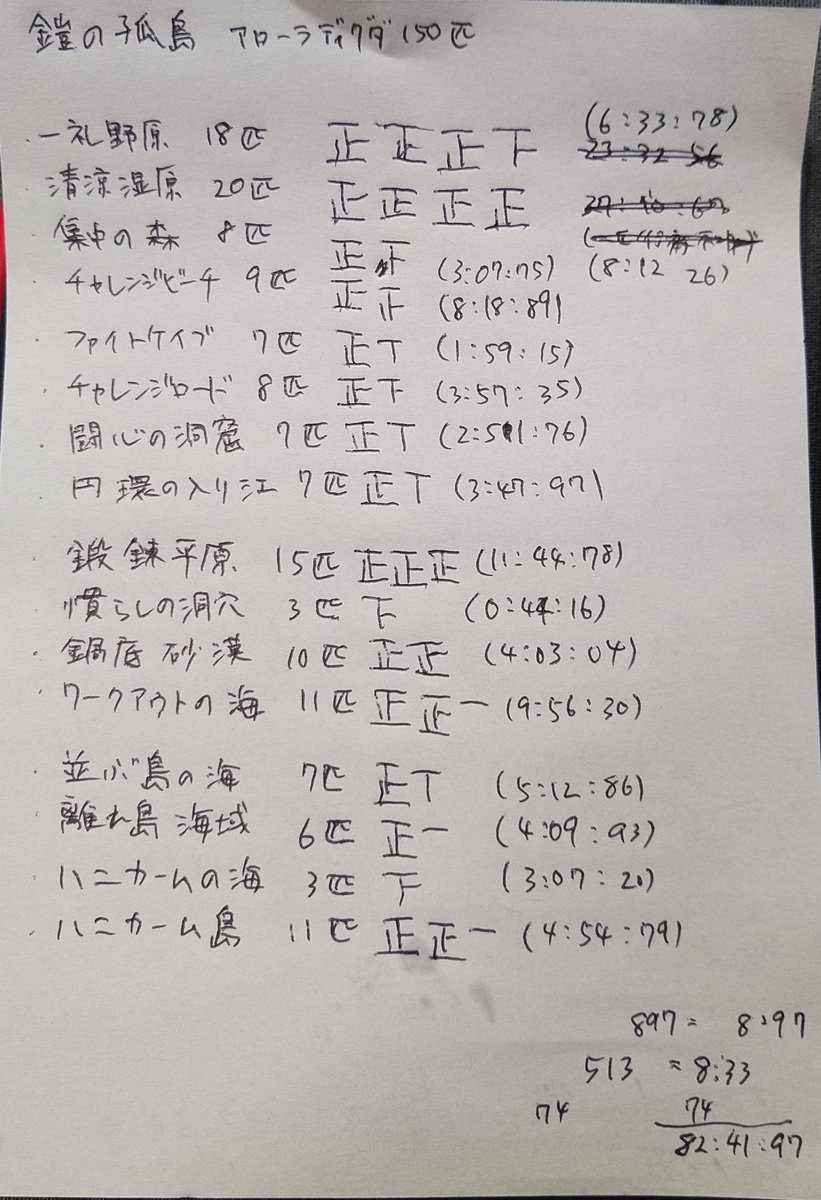 鎧の孤島 アローラディグダ150匹
・一礼野原 18匹 正正正下 (6:33:78)
23:32 56
清涼湿原 20匹 正正正正
集中の森 8匹 正下
(8:12 26)
チャレンジビーチ 9匹 正正 (3:07:75)
(8:18:89)
・ファイトケイブ 7匹 正T (1:59:15)
・チャレンジロード 8匹 正下 (3:57:35)
・闘心の洞窟 7匹 正T (2:51:76)
・円環の入り江 7匹 正T (3:47:97)
・鍛錬平原 15匹 正正正 (11:44:78)
・慣らしの洞穴 3匹 下 (0:44:16)
・鍋底砂漠 10匹 正正 (4:03:04)
・ワークアウトの海 11匹 正正一 (9:56:30)
・並ぶ島の海 7匹 正T (5:12:86)
離れ島海域 6匹 正一 (4:09:93)
・ハニカームの海 3匹 下 (3:07:20)
・ハニカーム島 11匹 正正一 (4:54:79)
897= 8:97
513 =8:33
74 74
82:41:97